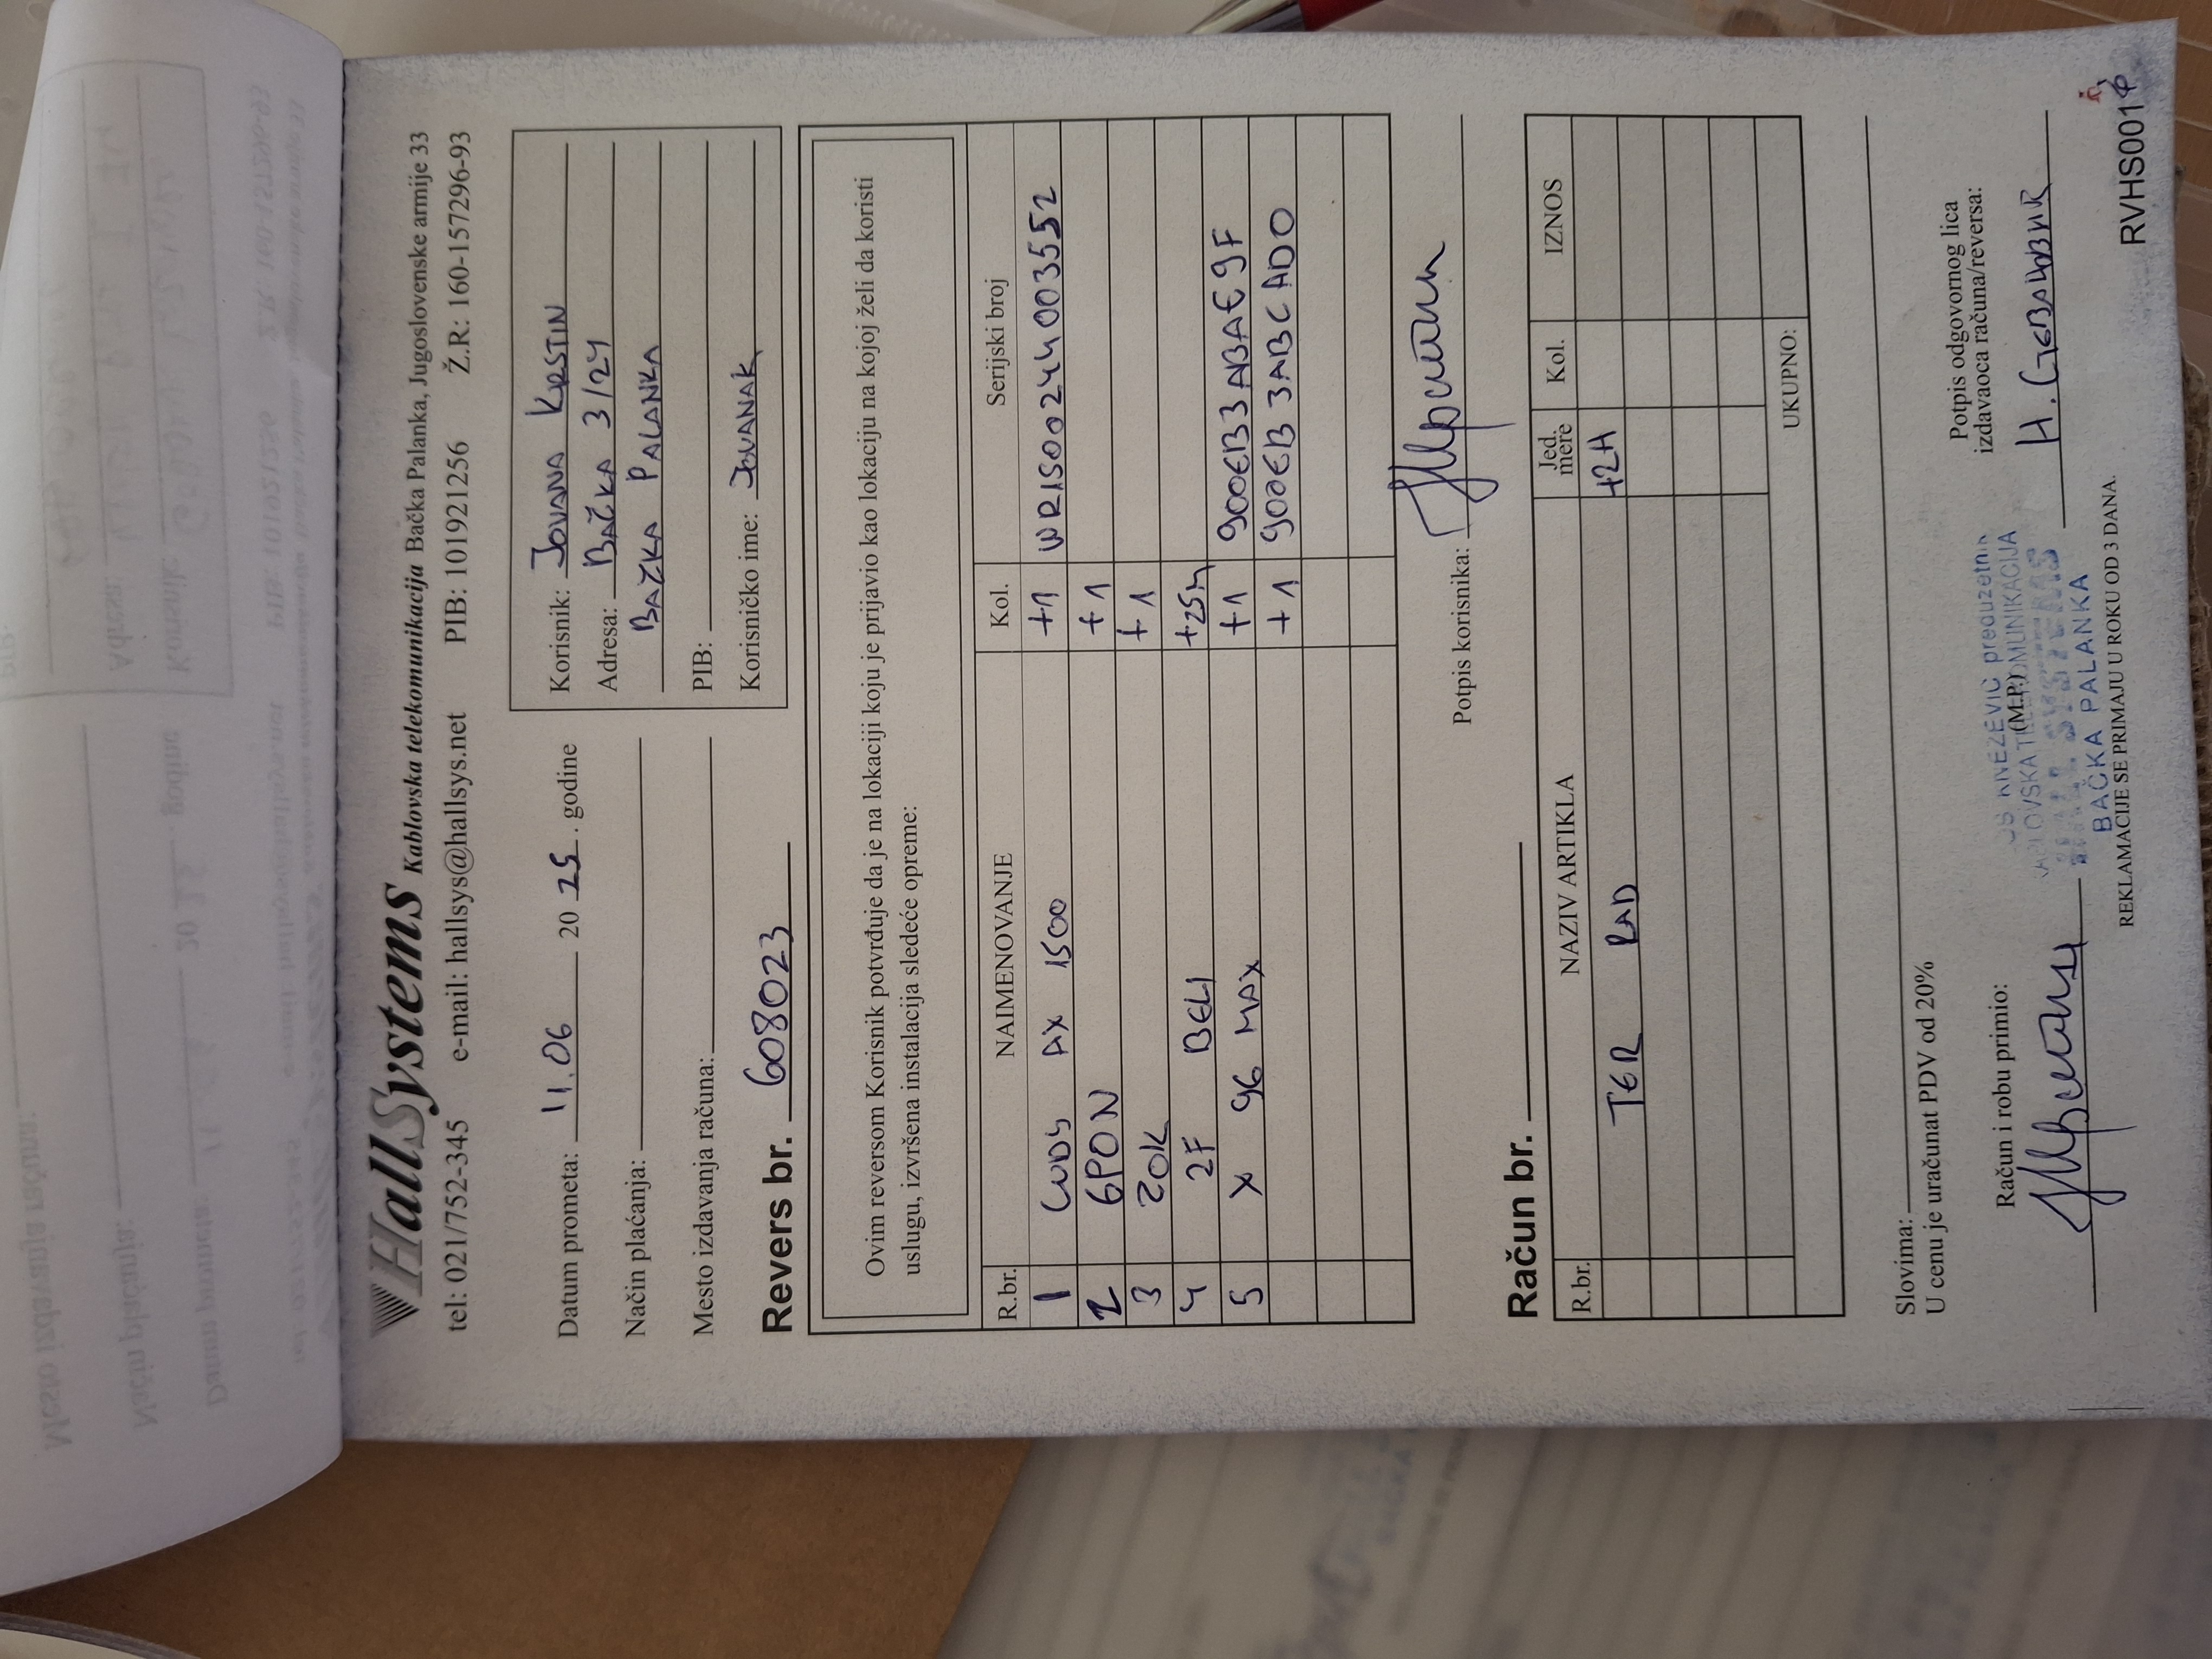 HallSystems Kablovska telekomunikacija Bačka Palanka, Jugoslovenske armije 33
tel: 021/752-345 e-mail: hallsys@hallsys.net PIB: 101921256 Ž.R: 160-157296-93
Datum prometa: 11.06 2025. godine
Način plaćanja:
Mesto izdavanja računa:
Korisnik: JOVANA KRSTIN
Adresa: BAČKA 3/24
BAČKA PALANKA
PIB:
Korisničko ime: JOVANAK
Revers br. 608023
Ovim reversom Korisnik potvrđuje da je na lokaciji koju je prijavio kao lokaciju na kojoj želi da koristi
uslugu, izvršena instalacija sledeće opreme:
R.br. NAIMENOVANJE Kol. Serijski broj
1 CUDY AX 1500 +1 WR1500244003552
2 GPON +1
3 ZOK +1
4 2F BELI +25M
5 X 96 MAX +1 900EB3ABAE9F
+1 900EB3ABCAD0
Potpis korisnika:
Račun br.
R.br. NAZIV ARTIKLA Jed. mere Kol. IZNOS
TER RAD +2H
UKUPNO:
Slovima:
U cenu je uračunat PDV od 20%
Račun i robu primio:
Potpis odgovornog lica
izdavaoca računa/reversa:
KNEŽEVIĆ preduzetnik
(M.P.)
BAČKA PALANKA
REKLAMACIJE SE PRIMAJU U ROKU OD 3 DANA.
RVHS001